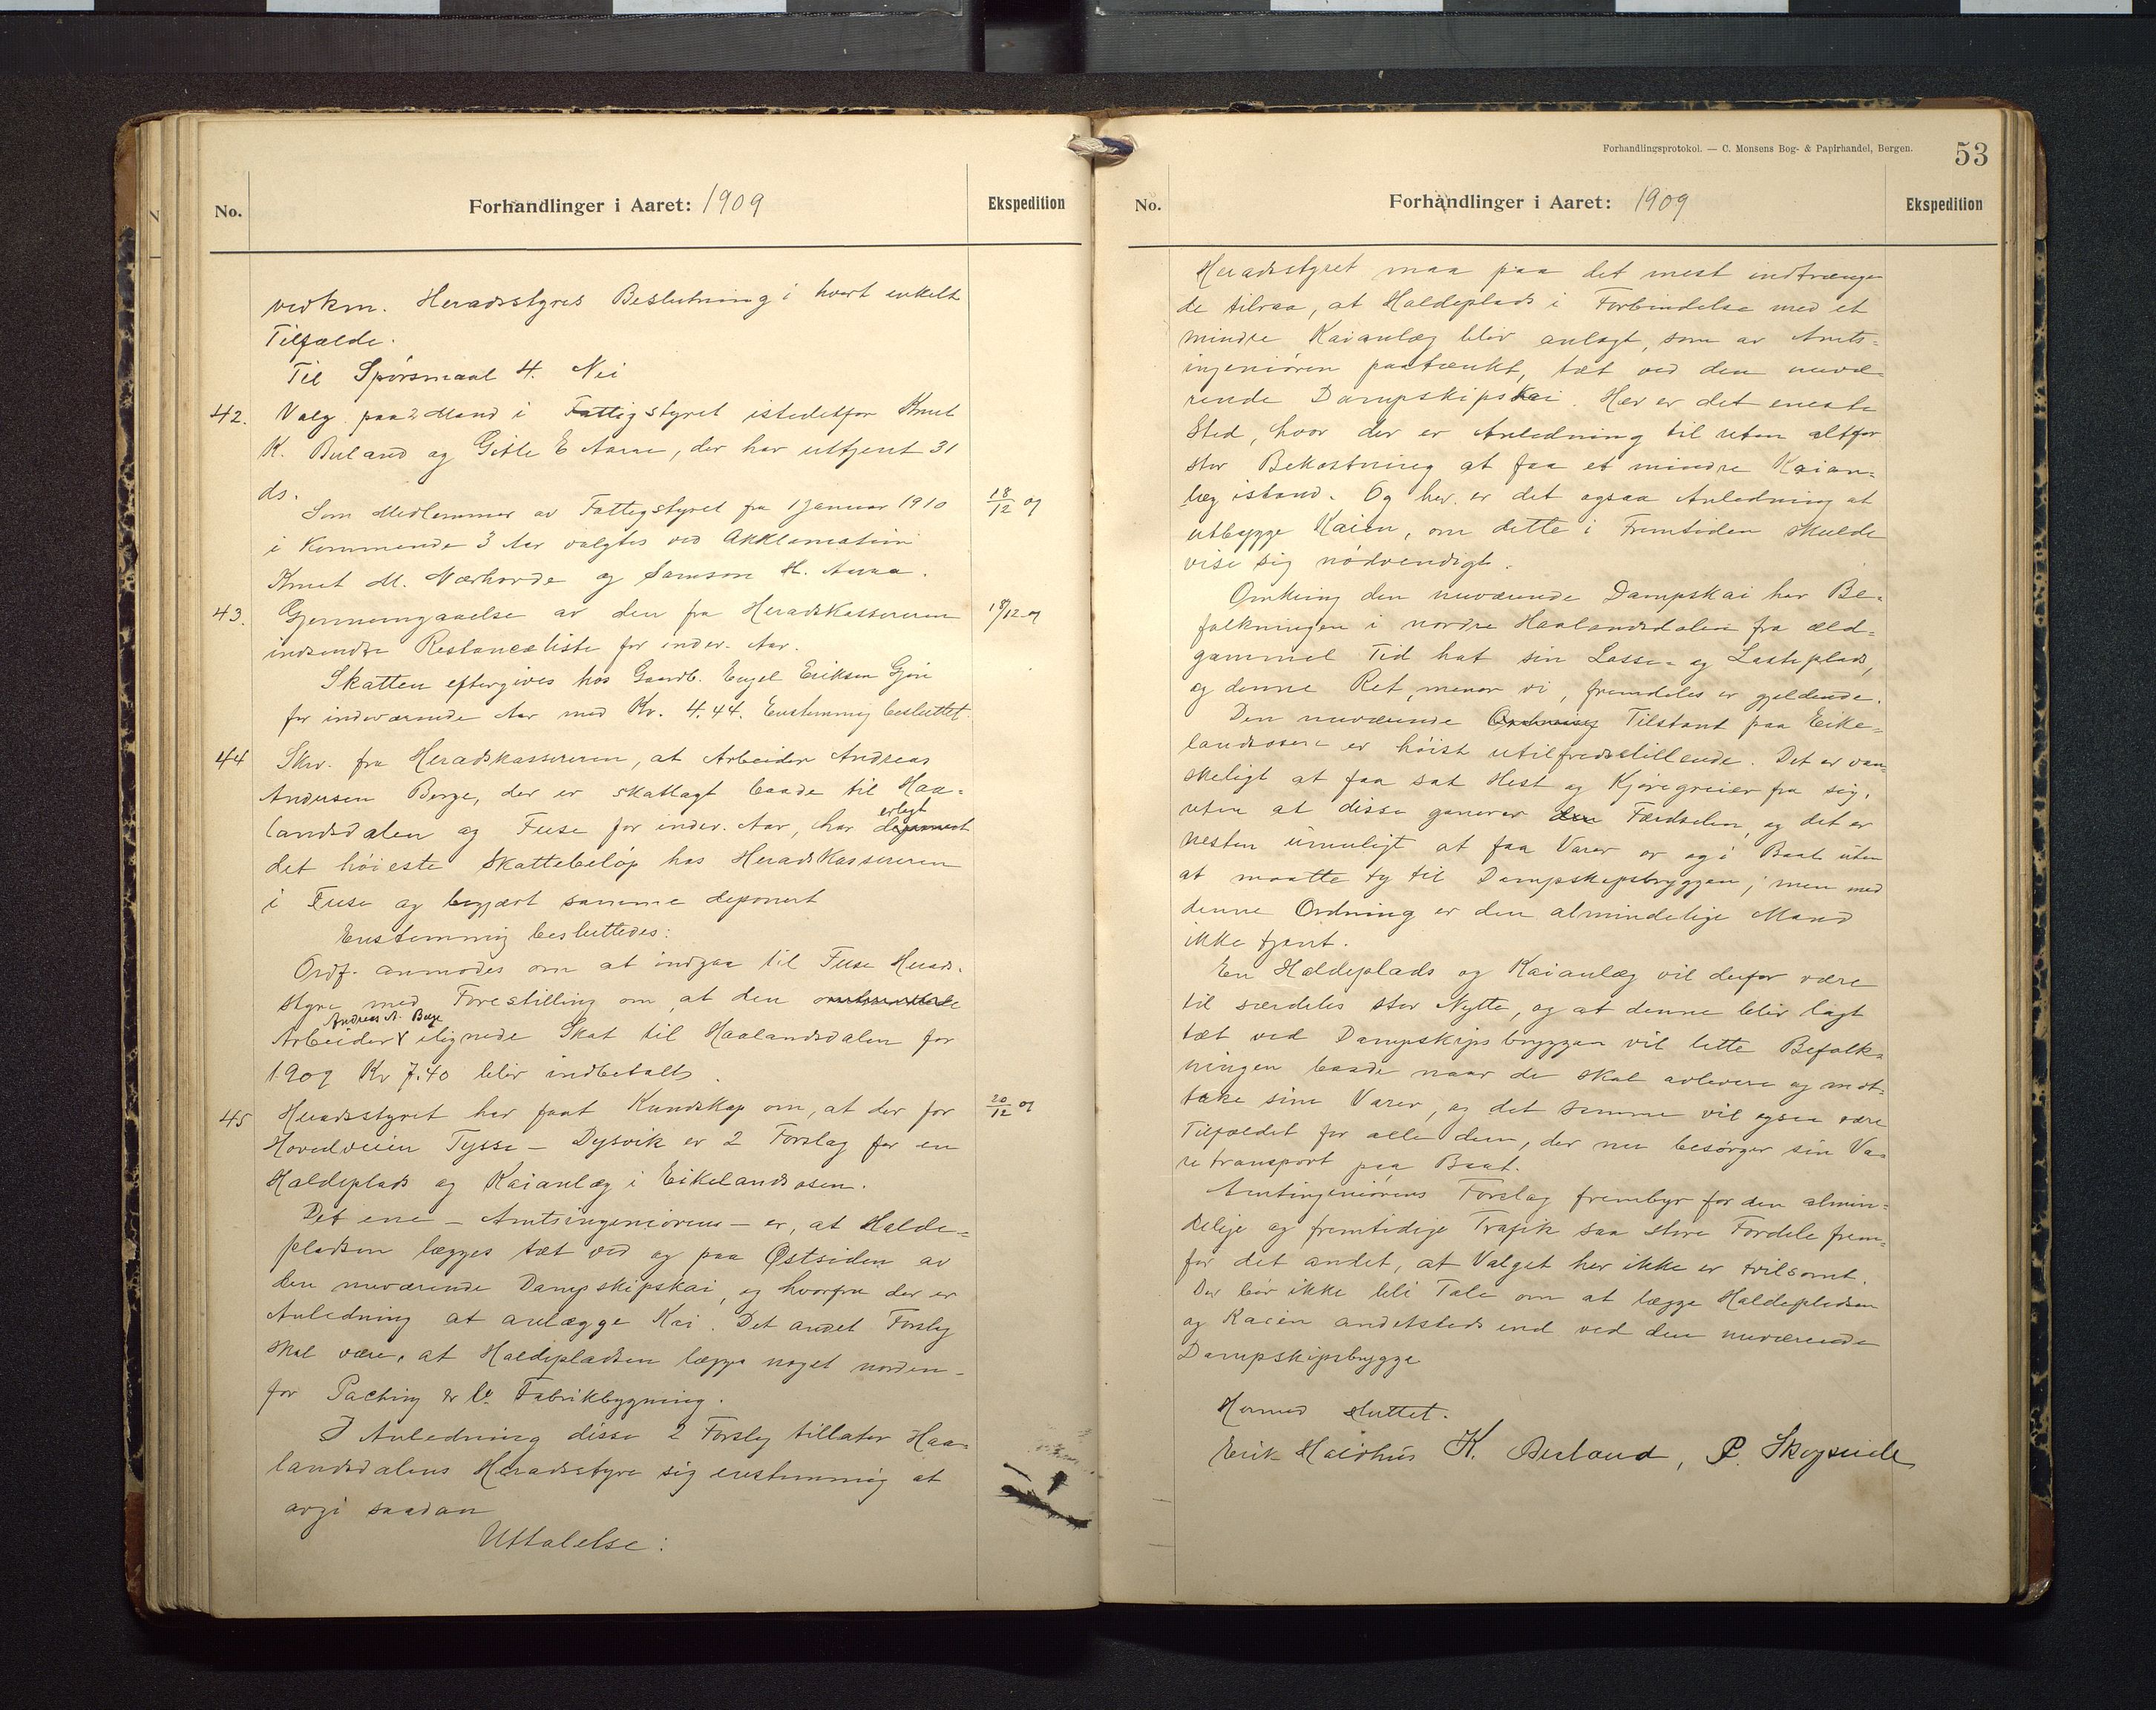 No.
Forhandlinger i Aaret: 1909
Ekspedition
vedkm. Heradsstyres Beslutning i hvert enkelt
Tilfælde.
Til Spörsmaal 4. Nei
42. Valg paa 2 Mand i Fattigstyret istedetfor Knut
K. Buland og Gitle E Aarra, der har uttjent 31
ds.
Som Medlemmer av Fattigstyret fra 1 Januar 1910
18/12 09
i kommende 3 Aar valgtes ved Akklamation
Knut M. og Samson H. Aarra.
43. Gjennemgaaelse av den fra Heradskassereren
18/12 09
indsendte Restanceliste for indev. Aar.
Skatten eftergives hos Gaardb. Engel Eriksen Gjön
for indeværende Aar med Kr. 4.44. Enstemmig besluttet.
44 Skr. fra Heradskassereren, at Arbeider Andreas
Andersen Berge, der er skatlagt baade til Haa=
landsdalen og Fuse for indev. Aar, har erlagt
det höieste Skattebelöp hos Heradskassereren
i Fuse og begjært samme deponert
Enstemmig besluttedes:
Ordf. anmodes om at indgaa til Fuse Herads.
styre med Forestilling om, at den
Andreas A. Berge
Arbeider ilignede Skat til Haalandsdalen for
1909 Kr 7.40 blir indbetalt.
45 Heradsstyret har faat Kundskap om, at der for
20/12 09
Hovedveien Tysse – Dysvik er 2 Forslag for en
Holdeplads og Kaianlæg i Eikelandsosen.
Det ene – Amtsingeniörens – er, at Holde=
pladsen lægges tæt ved og paa Østsiden av
den nuværende Dampskipskai, og hvorfra der er
Anledning at anlægge Kai. Det andet Forslag
skal være, at Holdepladsen lægges noget norden-
for Packing & Co Fabrikbygning.
I Anledning disse 2 Forslag tillater Haa=
landsdalens Heradsstyre sig enstemmig at
avgi saadan
Uttalelse:
Forhandlingsprotokol. — C. Monsens Bog- & Papirhandel, Bergen.
53
No.
Forhandlinger i Aaret: 1909
Ekspedition
Heradsstyret maa paa det mest indtrængen
de tilraa, at Holdeplads i Forbindelse med et
mindre Kaianlæg blir anlagt, som av Amts=
ingeniören paatænkt, tæt ved den nuvæ=
rende Dampskipskai. Her er det eneste
Sted, hvor der er Anledning til uten altfor
stor Bekostning at faa et mindre Kaian=
læg istand. Og her er det ogsaa Anledning at
utbygge Kaien, om dette i Fremtiden skulde
vise sig nödvendigt.
Omkring den nuværende Dampskai har Be=
folkningen i nordre Haalandsdalen fra æld=
gammel Tid hat sin Losse- og Lasteplads,
og denne Ret, mener vi, fremdeles er gjeldende.
Den nuværende Tilstand paa Eike=
landsosen er höist utilfredsstillende. Det er van=
skeligt at faa sat Hest og Kjöregreier fra sig,
uten at disse generer Færdselen, og det er
nesten umuligt at faa Varer or og i Baat uten
at maatte ty til Dampskipsbryggen; men med
denne Ordning er den almindelige Mand
ikke tjent.
En Holdeplads og Kaianlæg vil derfor være
til særdeles stor Nytte, og at denne blir lagt
tæt ved Dampskipsbryggen vil lette Befolk=
ningen baade naar de skal avlevere og mot=
take sine Varer, og det samme vil ogsaa være
Tilfældet for alle dem, der nu besörger sin Va=
retransport paa Baat.
Amtsingeniörens Forslag frembyr for den almin=
delige og fremtidige Trafik saa store Fordele frem=
for det andet, at Valget her ikke er tvilsomt.
Der bör ikke bli Tale om at lægge Holdepladsen
og Kaien andetsteds end ved den nuværende
Dampskipsbrygge
Hermed sluttet.
Erik K. Buland, P. Skogseide